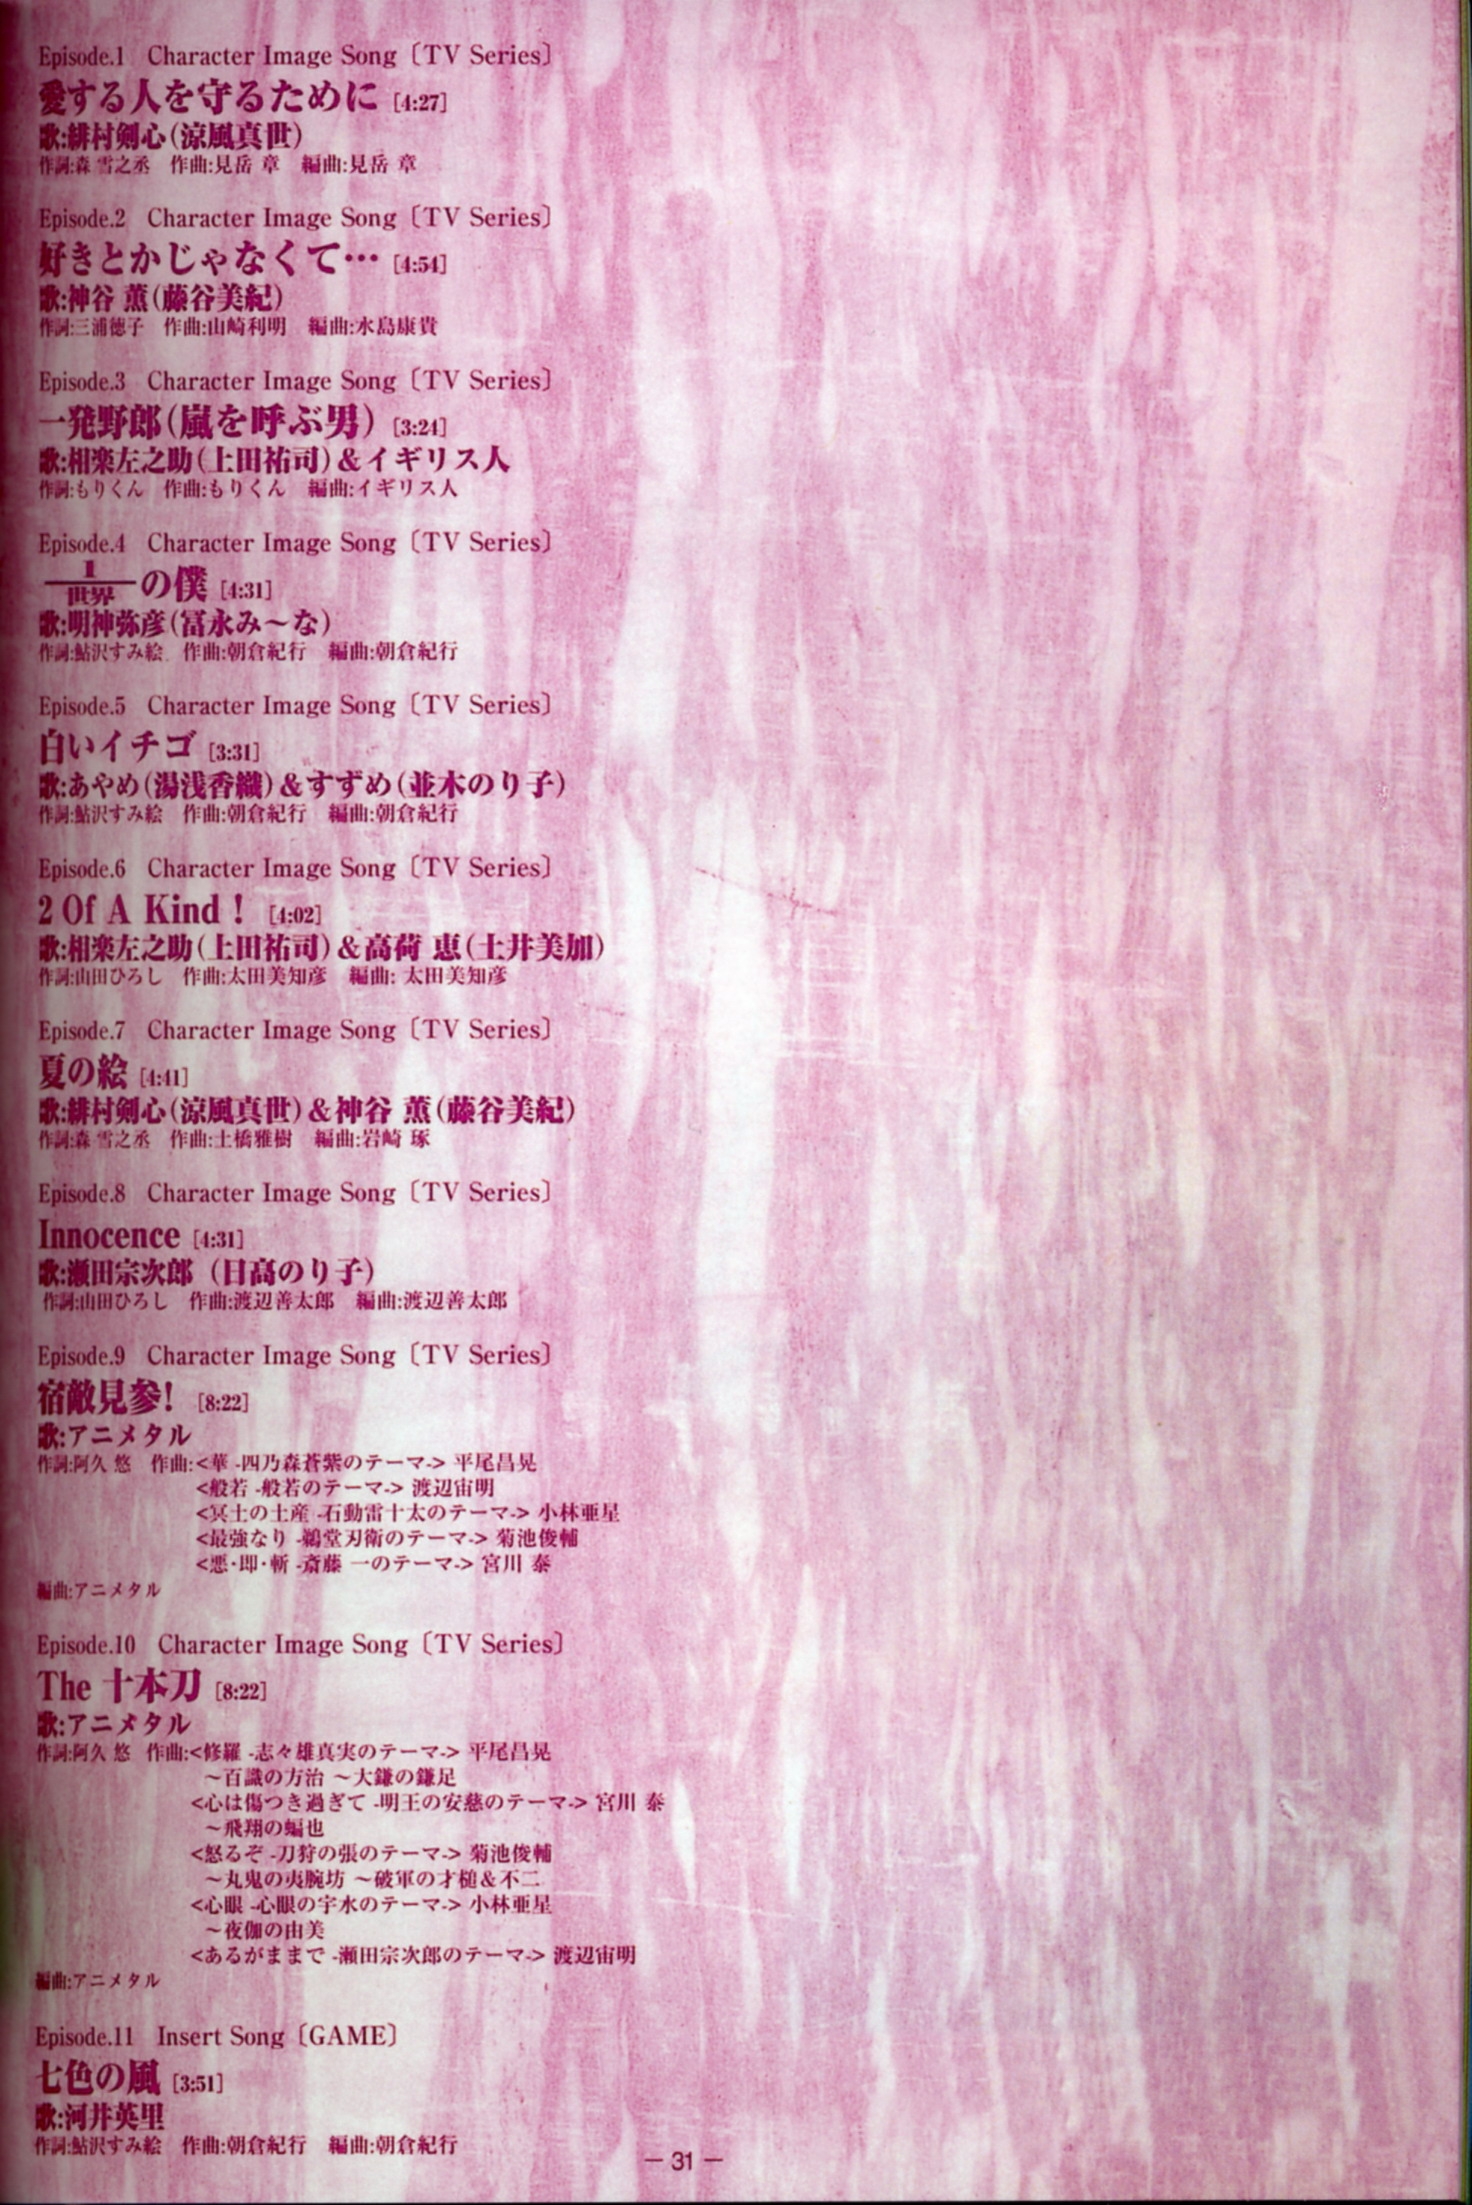 Episode.1 Character Image Song〔TV Series〕
愛する人を守るために [4:27]
歌:緋村剣心(涼風真世)
作詞:森 雪之丞 作曲:見岳 章 編曲:見岳 章
Episode.2 Character Image Song〔TV Series〕
好きとかじゃなくて… [4:54]
歌:神谷 薫(藤谷美紀)
作詞:三浦徳子 作曲:山崎利明 編曲:水島康貴
Episode.3 Character Image Song〔TV Series〕
一発野郎(嵐を呼ぶ男) [3:24]
歌:相楽左之助(上田祐司)&イギリス人
作詞:もりくん 作曲:もりくん 編曲:イギリス人
Episode.4 Character Image Song〔TV Series〕
1/世界の僕 [4:31]
歌:明神弥彦(冨永み〜な)
作詞:鮎沢すみ絵 作曲:朝倉紀行 編曲:朝倉紀行
Episode.5 Character Image Song〔TV Series〕
白いイチゴ [3:31]
歌:あやめ(湯浅香織)&すずめ(並木のり子)
作詞:鮎沢すみ絵 作曲:朝倉紀行 編曲:朝倉紀行
Episode.6 Character Image Song〔TV Series〕
2 Of A Kind ! [4:02]
歌:相楽左之助(上田祐司)&高荷 恵(土井美加)
作詞:山田ひろし 作曲:太田美知彦 編曲: 太田美知彦
Episode.7 Character Image Song〔TV Series〕
夏の絵 [4:41]
歌:緋村剣心(涼風真世)&神谷 薫(藤谷美紀)
作詞:森 雪之丞 作曲:土橋雅樹 編曲:岩崎 琢
Episode.8 Character Image Song〔TV Series〕
Innocence [4:31]
歌:瀬田宗次郎 (日高のり子)
作詞:山田ひろし 作曲:渡辺善太郎 編曲:渡辺善太郎
Episode.9 Character Image Song〔TV Series〕
宿敵見参! [8:22]
歌:アニメタル
作詞:阿久 悠 作曲:<華 -四乃森蒼紫のテーマ-> 平尾昌晃
<般若 -般若のテーマ-> 渡辺宙明
<冥土の土産 -石動雷十太のテーマ-> 小林亜星
<最強なり -鵜堂刃衛のテーマ-> 菊池俊輔
<悪・即・斬 -斎藤 一のテーマ-> 宮川 泰
編曲:アニメタル
Episode.10 Character Image Song〔TV Series〕
The 十本刀 [8:22]
歌:アニメタル
作詞:阿久 悠 作曲:<修羅 -志々雄真実のテーマ-> 平尾昌晃
〜百識の方治 〜大鎌の鎌足
<心は傷つき過ぎて -明王の安慈のテーマ-> 宮川 泰
〜飛翔の蝙也
<怒るぞ -刀狩の張のテーマ-> 菊池俊輔
〜丸鬼の夷腕坊 〜破軍の才槌&不二
<心眼 -心眼の宇水のテーマ-> 小林亜星
〜夜伽の由美
<あるがままで -瀬田宗次郎のテーマ-> 渡辺宙明
編曲:アニメタル
Episode.11 Insert Song〔GAME〕
七色の風 [3:51]
歌:河井英里
作詞:鮎沢すみ絵 作曲:朝倉紀行 編曲:朝倉紀行
― 31 ―